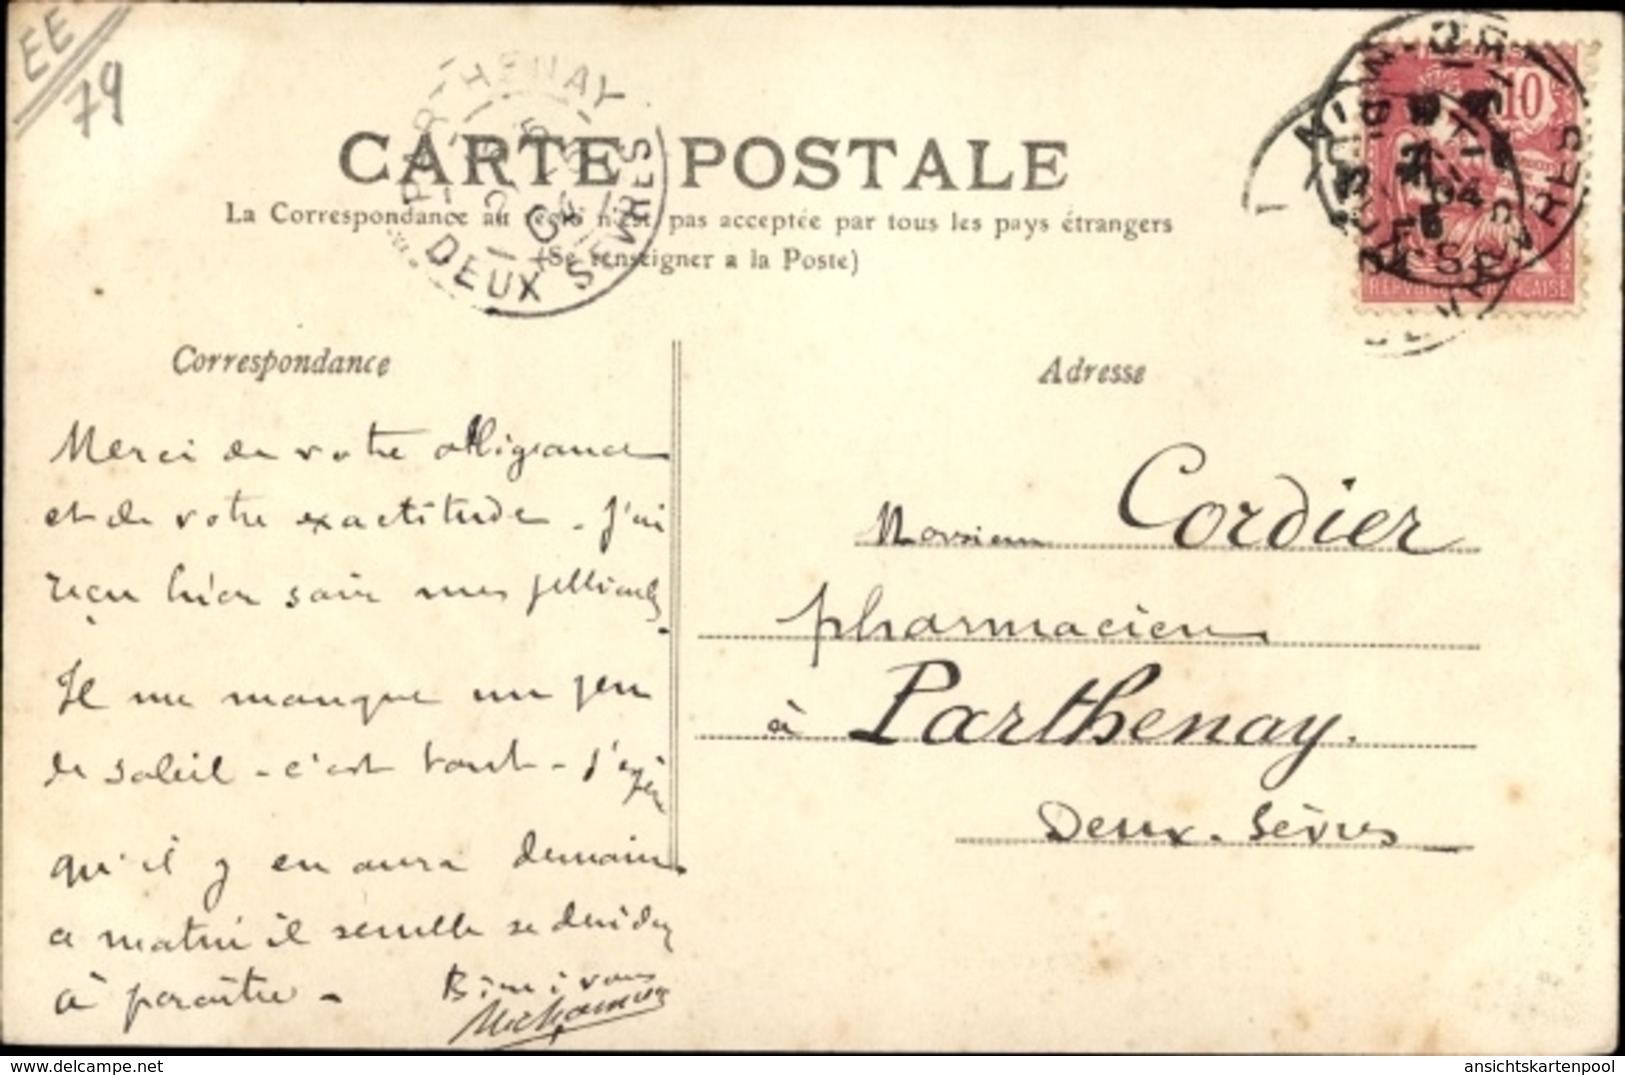 EE
79
PARTHENAY
DEUX SEVRES
10
CARTE POSTALE
La Correspondance au recto n'est pas acceptée par tous les pays étrangers
(Se renseigner a la Poste)
Correspondance
Adresse
Merci de votre obligeance
et de votre exactitude. J'ai
reçu hier soir mes pellicules.
Il me manque un peu
de soleil - c'est tout - J'espère
qu'il y en aura demain.
ce matin il semble se décider
à paraître -
Bien à vous
Monsieur Cordier
pharmacien
à Parthenay.
Deux-Sèvres
ansichtskartenpool.de
ansichtskartenpool